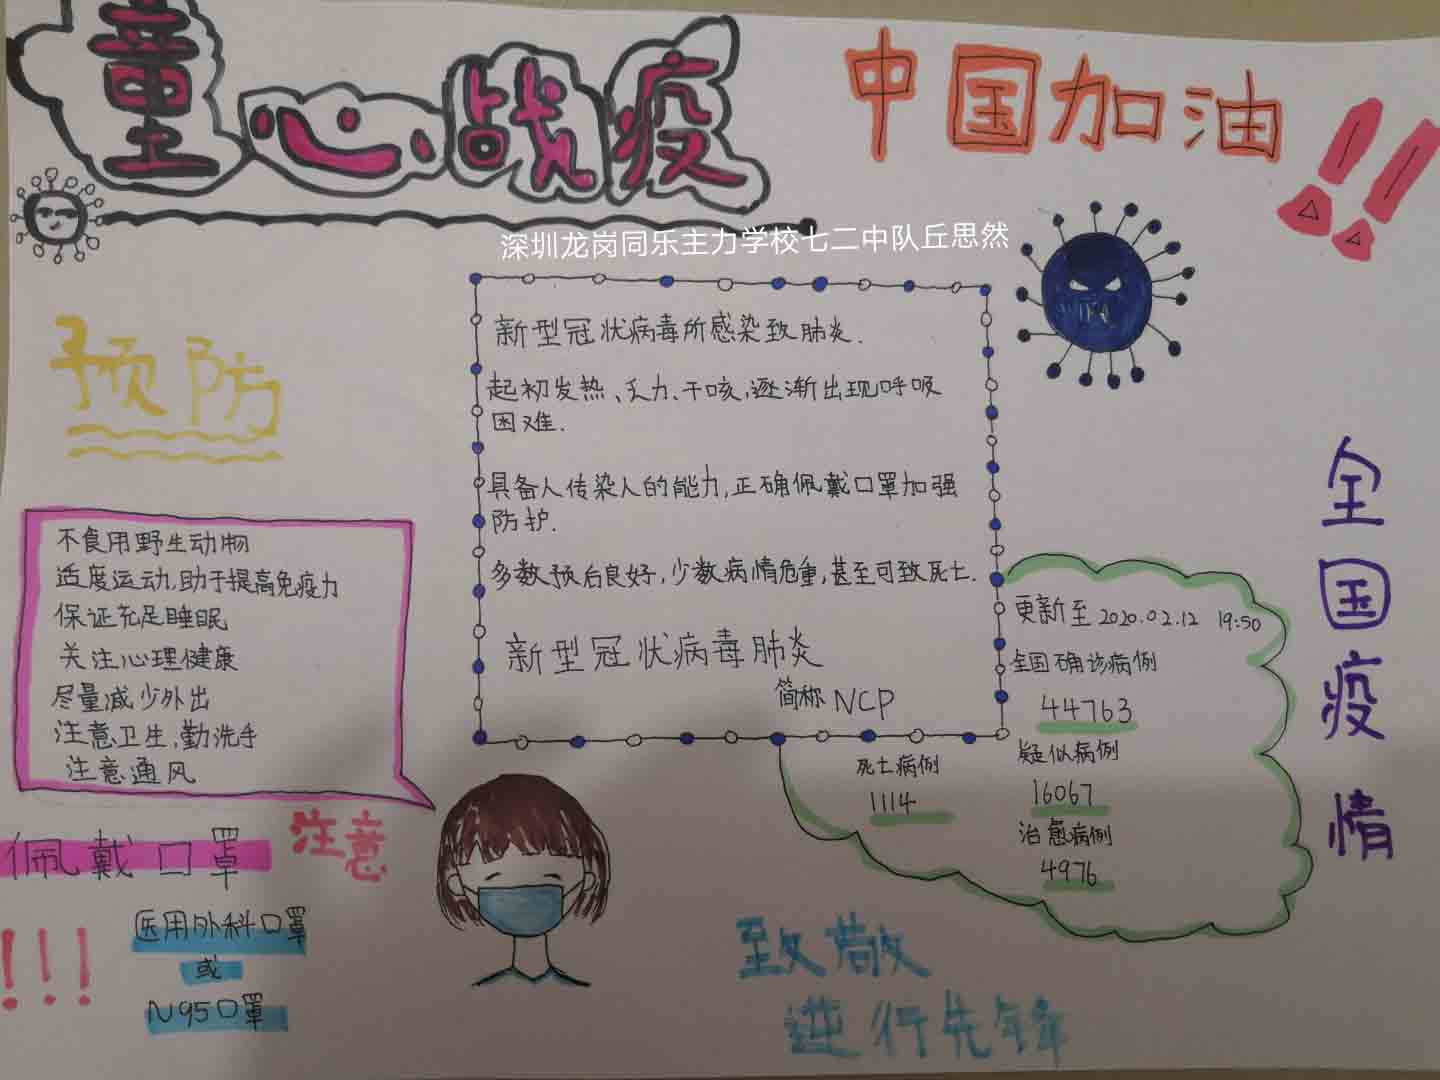 童心战疫
中国加油!!
深圳龙岗同乐主力学校七二中队丘思然
新型冠状病毒所感染致肺炎.
起初发热、乏力、干咳,逐渐出现呼吸
困难.
具备人传染人的能力,正确佩戴口罩加强
防护.
多数预后良好,少数病情危重,甚至可致死亡.
新型冠状病毒肺炎
简称NCP
预防
不食用野生动物
适度运动,助于提高免疫力
保证充足睡眠
关注心理健康
尽量减少外出
注意卫生,勤洗手
注意通风
佩戴口罩
注意
!!!
医用外科口罩
或
N95口罩
全国疫情
更新至 2020.02.12 19:50
全国确诊病例
44763
疑似病例
16067
死亡病例
1114
治愈病例
4976
致敬
逆行先锋